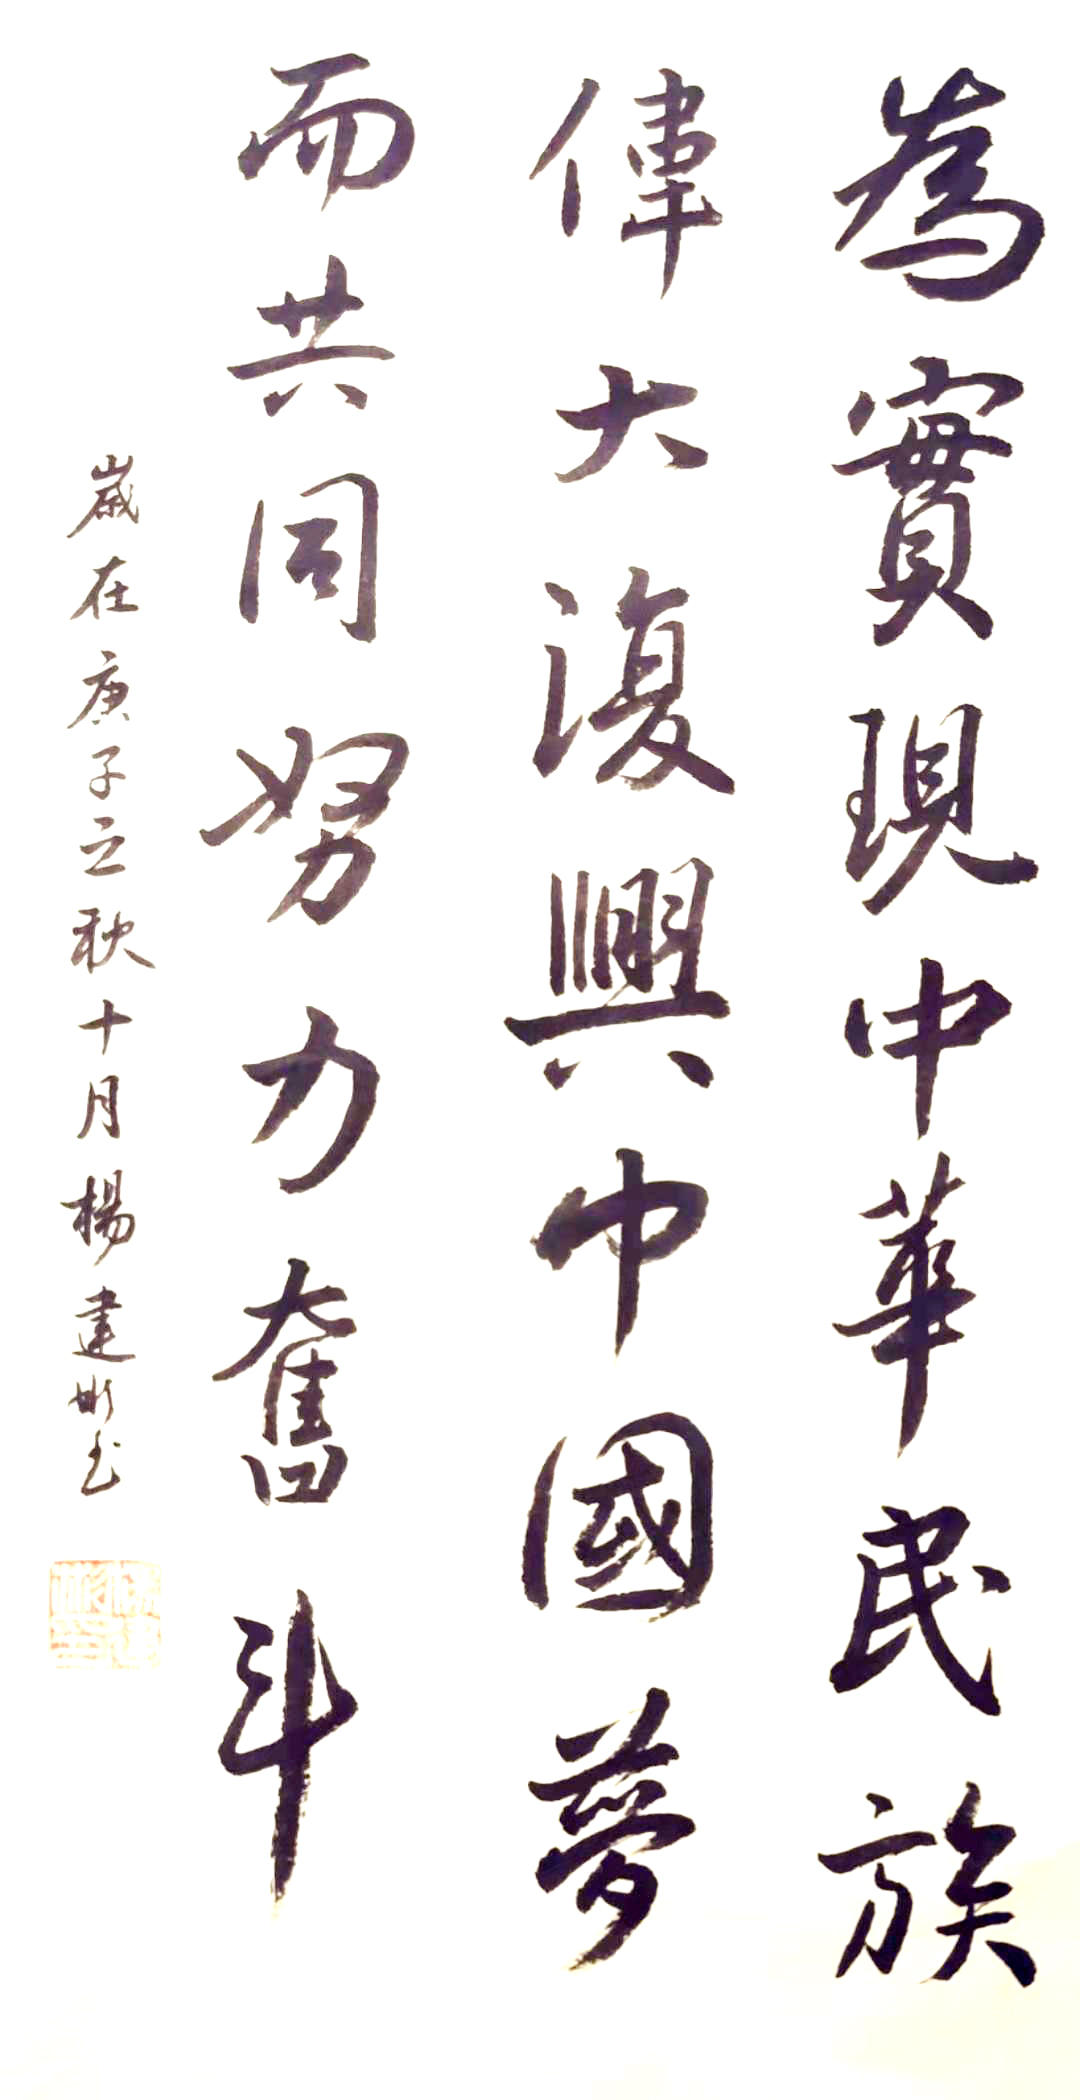 為實現中華民族
偉大復興中國夢
而共同努力奮斗
歲在庚子立秋十月楊建彬书